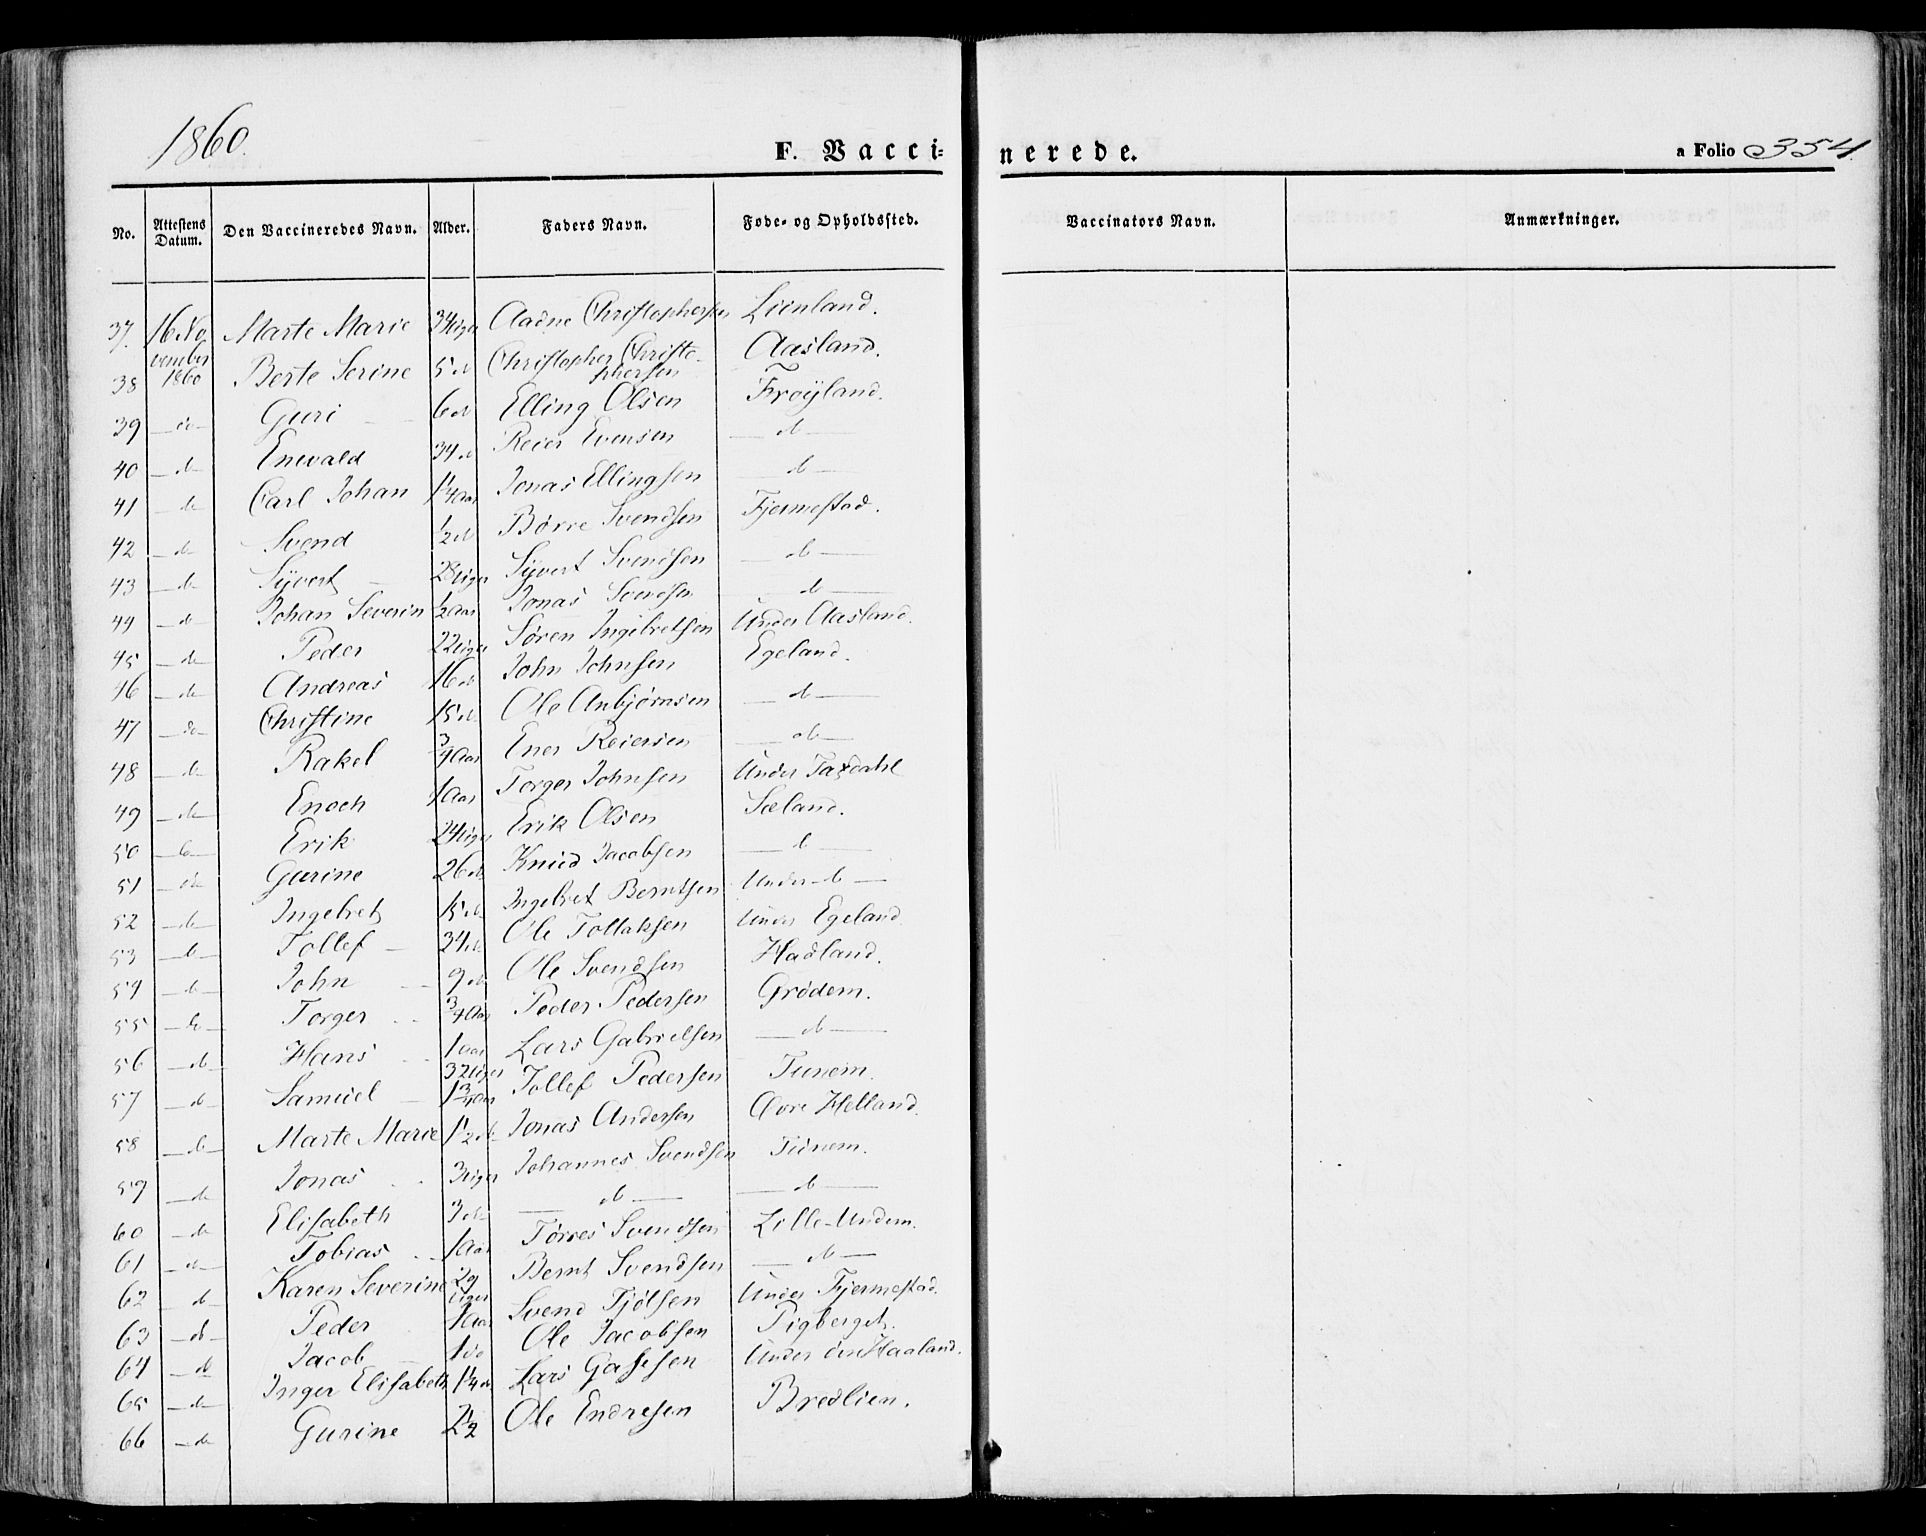 1860.
F. Vacci=
nerede.
a Folio 354.
No. Attestens Datum. Den Vaccineredes Navn. Alder. Faders Navn. Føde- og Opholdssted. Vaccinators Navn. Anmærkninger.
37. 16 No vember 1860 Marte Marie 34 Uger Aadne Christophersen Lunland.
38 Berte Serine 5 do Christopher Christo- phersen Aasland.
39 do Guri 6 do Elling Olsen Frøÿland.
40 do Enevald 34 do Reier Evensen do
41 do Carl Johan 1 1/4 Aar Jonas Ellingsen do
42 do Svend 1/2 do Børre Svendsen Fjermestad.
43 do Syvert 28 Uger Syvert Svendsen do
44 do Johan Severin 1/2 Aar Jonas Svendsen do
45 do Peder 22 Uger Søren Ingebretsen Under Aasland.
46 do Andreas 16 do John Johnsen Egeland.
47 do Christine 15 do Ole Anbjørnsen do
48 do Rakel 3/4 Aar Ener Reiersen do
49 do Enoch 1 Aar Torger Johnsen Under Taxdahl
50 do Erik 24 Uger Erik Olsen Sæland.
51 do Gurine 26 do Knud Jacobsen do
52 do Ingebret 15 do Ingebret Berntsen Under do
53 do Tollef 34 do Ole Tollaksen Under Egeland
54 do John 9 do Ole Svendsen Hadland.
55 do Torger 3/4 Aar Peder Pedersen Grødem.
56 do Hans 1 Aar Lars Gabrielsen do
57 do Samuel 32 Uger 1 3/4 Aar Tollef Pedersen Tunem.
58 do Marte Marie 1 1/2 do Jonas Andersen Øvre Helland.
59 do Jonas 3 Uger Johannes Svendsen Tunem.
60 do Elisabeth 3 do do do
61 do Tobias 1 Aar Tørres Svendsen Lille-Undem.
62 do Karen Severine 29 Uger Bernt Svendsen do
63 do Peder 1 Aar Svend Fjølsen Under Fjermestad.
64 do Jacob 1 do Ole Jacobsen Pigberget.
65 do Inger Elisabeth 1 1/4 do Lars Under Haaland.
66 do Gurine 2 1/2 Ole Endresen Bredlien.